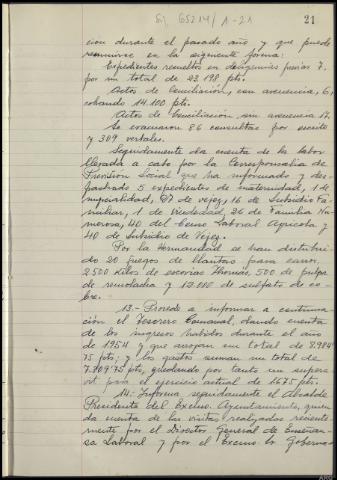 Sig 65214/1-21
21
ción durante el pasado año y que puede
resumirse en la siguiente forma:
Expedientes resueltos en diligencias previas 7,
por un total de 22.198 pts.
Actos de Conciliación, con avenencia, 6,
cobrando 14.100 pts.
Actos de Conciliación sin avenencia 17.
Se evacuaron 86 consultas por escrito
y 309 verbales.
Seguidamente da cuenta de la labor
llevada a cabo por la Corresponsalía de
Previsión Social que ha informado y des-
pachado 5 expedientes de maternidad, 1 de
nupcialidad, de vejez, 16 de Subsidio Fa-
miliar, 1 de Viudedad, 26 de Familia Nu-
merosa, 40 del Censo Laboral Agrícola y
40 de Subsidio de Vejez.
Por la Hermandad se han distribui-
do 20 juegos de llantas para carros,
2500 kilos de escorias Thomas, 500 de pulpa
de remolacha y 12.000 de sulfato de co-
bre.
13.- Procede a informar a continua-
ción el Tesorero Comarcal, dando cuenta
de los ingresos habidos durante el año
de 1954 y que arrojan un total de 8.984
75 pts; y los gastos suman un total de
7.309'75 pts, quedando por tanto un superá-
vit para el ejercicio actual de 1.675 pts.
14.- Informa seguidamente el Alcalde
Presidente del Excmo. Ayuntamiento, quien
da cuenta de las visitas realizadas reciente-
mente por el Director General de Enseñan-
sa Laboral y por el Excmo. Sr. Goberna-